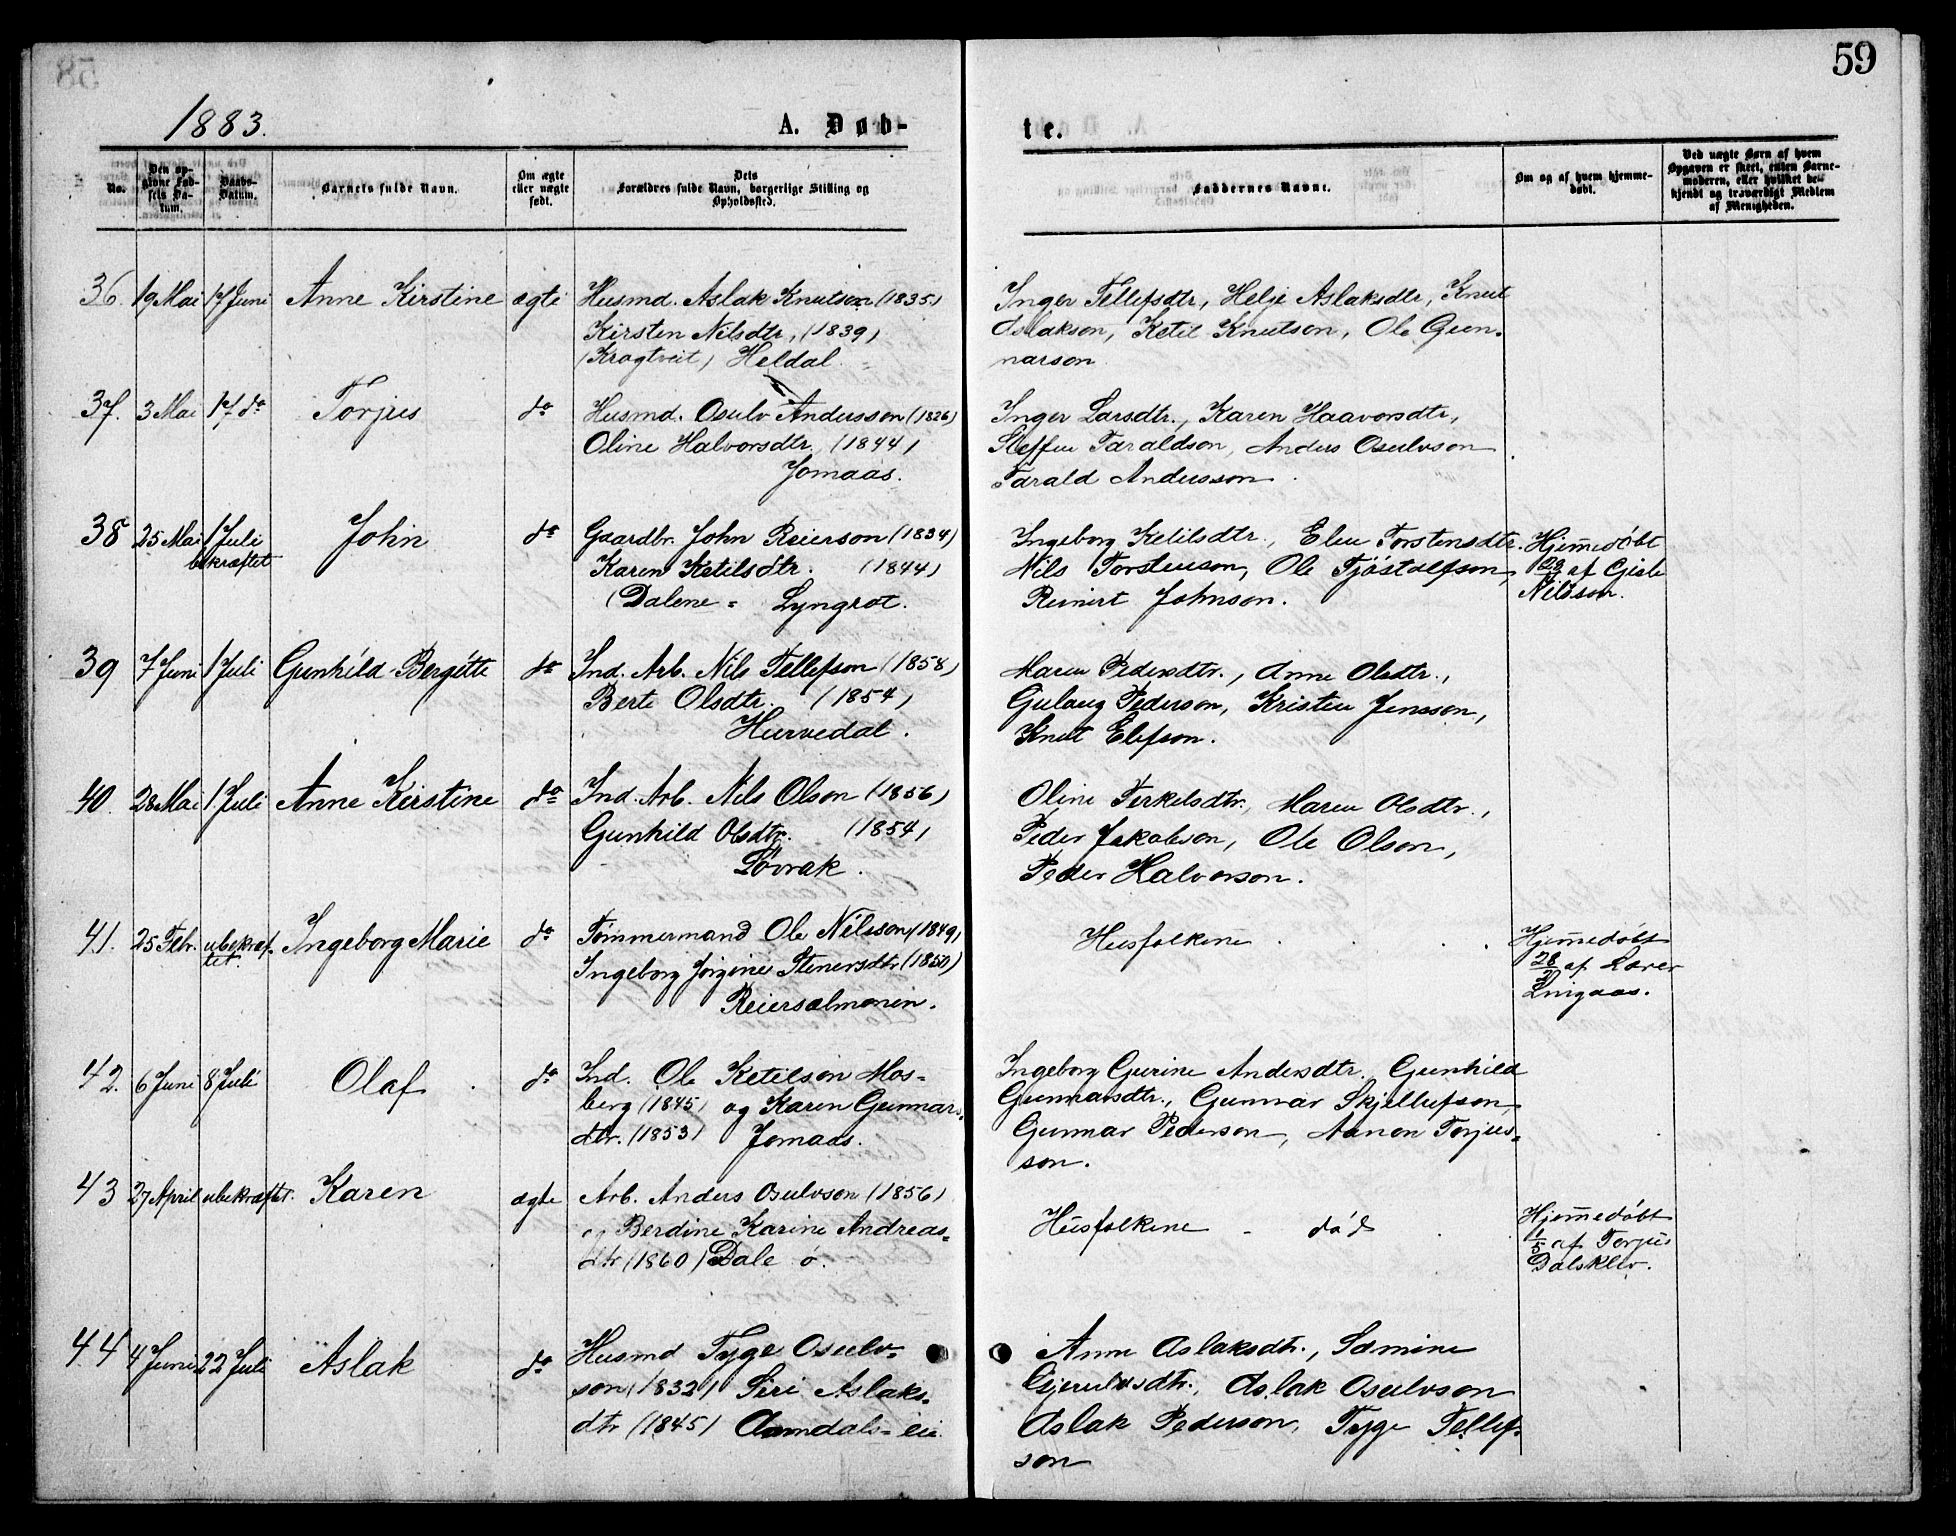 59
1883.
A. Døb-
te.
No.
Den op-
givne Fød-
sels Da-
tum.
Daabs-
Datum.
Barnets fulde Navn.
Om ægte
eller uægte
født.
Dets
Forældres fulde Navn, borgerlige Stilling og
Opholdssted.
Faddernes Navne.
Om og af hvem hjemme-
døbt.
Ved uægte Børn af hvem
Opgaven er skeet, enten Barne-
moderen, eller hvilket be-
kjendt og troværdigt Medlem
af Menigheden.
36. 19 Mai 17 Juni Anne Kirstine ægte Husmd. Aslak Knutson (1835)
Kirsten Nilsdtr, (1839)
(Krogtveit) Heldal.
Inger Tellefsdtr, Helje Aslaksdtr, Knut
Aslakson, Ketil Knutson, Ole Gun-
narson
37. 3 Mai 17 do Torjus do Husmd. Osulv Andersson (1826)
Oline Halvorsdtr, (1844)
Jomaas.
Inger Larsdtr., Karen Haavorsdtr,
Steffen Taraldson, Anders Osulvson
Tarald Andersson.
38 25 Mai 1 Juli
bekræftet
John do Gaardbr. John Reierson (1834)
Karen Ketilsdtr. (1844)
(Dalene = Lyngrot.
Ingeborg Ketilsdtr., Elen Torstensdtr.
Nils Torstenson, Ole Tjöstolfson,
Reinert Johnson.
Hjemmedøbt
af Gisle
Nilsson.
39 7 Juni 1 Juli Gunhild Bergitte do Ind. Arb. Nils Tellefson (1858)
Berte Olsdtr. (1854)
Hurvedal.
Maren Pedersdtr., Anne Olsdtr.,
Gulaug Pederson, Kristen Jensson,
Knut Elefson.
40. 28 Mai 1. Juli Anne Kirstine do Ind. Arb. Nils Olson (1856)
Gunhild Olsdtr. (1854)
Løvrak.
Oline Terkelsdtr., Maren Olsdtr.,
Peder Jakobson, Ole Olson,
Peder Halvorson.
41. 25 Febr. ubekræf-
tet.
Ingeborg Marie do Tømmermand Ole Nilsson (1849)
Ingeborg Jørgine Stenersdtr (1850)
Reiersølmonin.
Husfolkene
Hjemmedøbt
28/2 af Lærer
Lingaas.
42. 6 Juni 8 Juli Olaf do Ind. Ole Ketilson Mos-
berg (1845) og Karen Gunnars-
dtr. (1853) Jomaas.
Ingeborg Gurine Andersdtr. Gunhild
Gunnarsdtr., Gunnar Skjellufson,
Gunnar Pederson, Aanon Torjus-
son.
43 27 April ubekræftet. Karen ægte Arb. Anders Osulvson (1856)
og Berdine Karine Andreas-
dtr (1860) Dale ø.
Husfolkene - død
Hjemmedøbt
1/5 af Torjus
Dalsklev.
44 4 Juni 22 Juli Aslak do Husmd Tyge Osulv-
son (1832) Siri Aslaks-
dtr (1845) Aamdals-eie
Anne Aslaksdtr., Samine
Gjerulvsdtr., Aslak Osulvson
Aslak Pederson, Tyge Tellef-
son